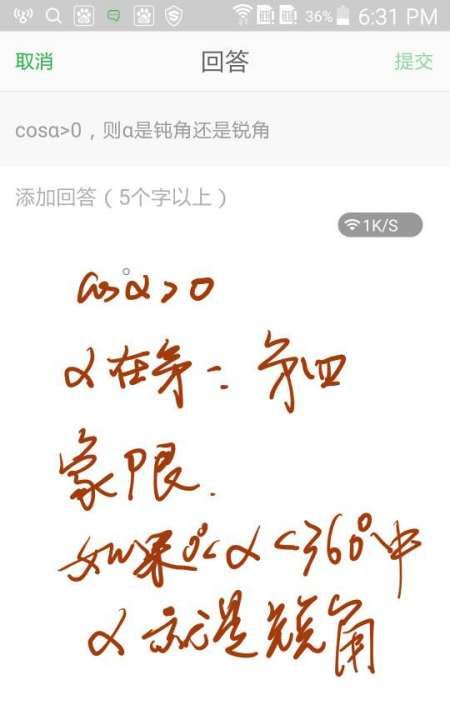 36% 6:31 PM
取消 回答 提交
cosα>0，则α是钝角还是锐角
添加回答（5个字以上）
1K/S
cosα>0
α在第一、第四
象限.
如果0°<α<360°中
α就是锐角